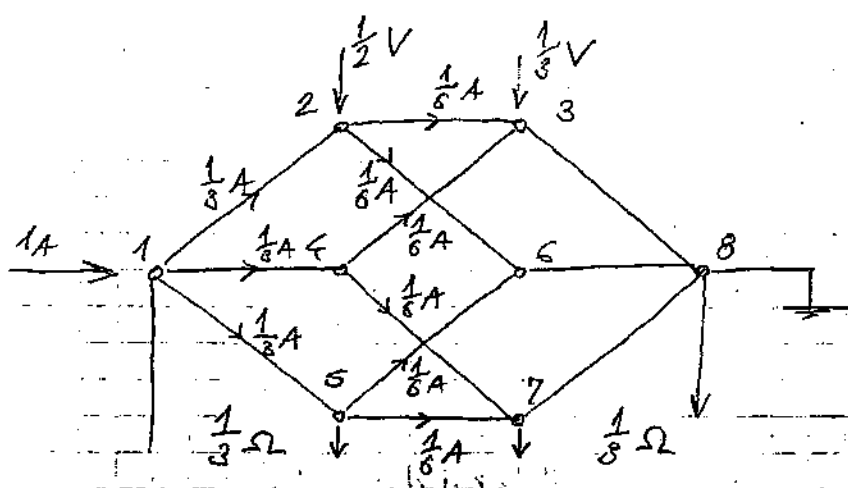 1/2 V
1/3 V
2
1/6 A
3
1/3 A
1/6 A
1A
1
1/3 A
4
1/6 A
6
8
1/3 A
1/6 A
1/6 A
5
7
1/3 Ω
1/6 A
1/3 Ω